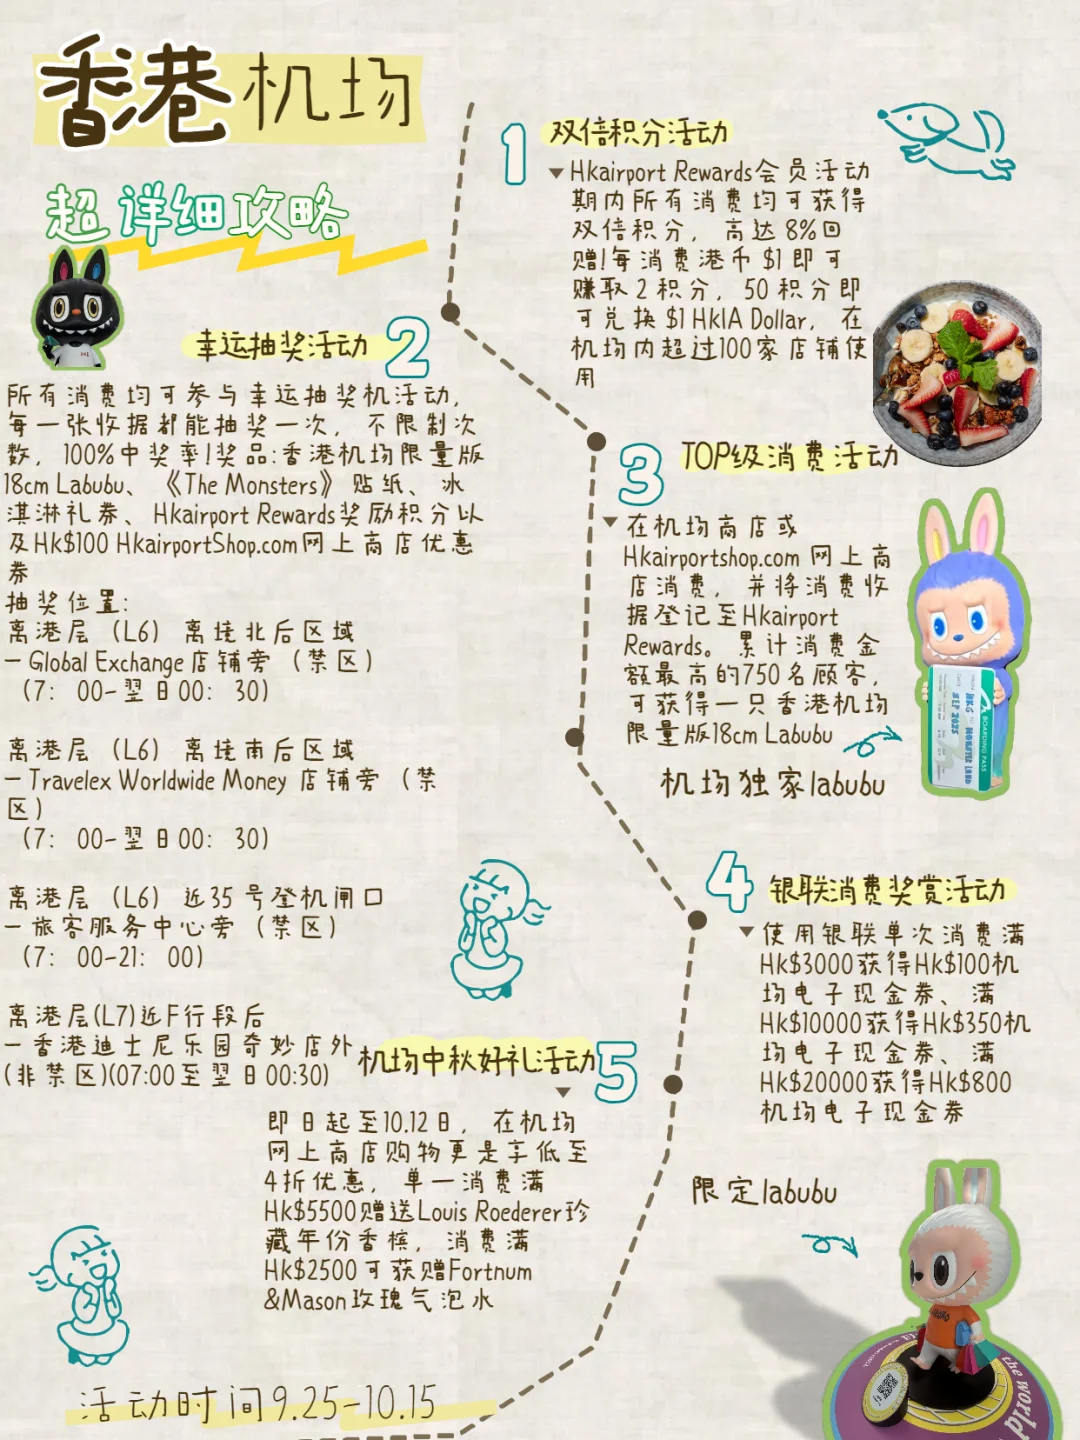 香港机场
超详细攻略
1 双倍积分活动
Hkairport Rewards会员活动
期内所有消费均可获得
双倍积分，高达8%回
赠!每消费港币$1即可
赚取2积分，50积分即
可兑换$1 HKIA Dollar，在
机场内超过100家店铺使
用
幸运抽奖活动 2
所有消费均可参与幸运抽奖机活动，
每一张收据都能抽奖一次，不限制次
数，100%中奖率!奖品:香港机场限量版
18cm Labubu、《The Monsters》贴纸、冰
淇淋礼券、Hkairport Rewards奖励积分以
及HK$100 HkairportShop.com网上商店优惠
券
抽奖位置:
离港层（L6）离境北后区域
– Global Exchange店铺旁（禁区）
（7：00-翌日00：30）
离港层（L6）离境南后区域
– Travelex Worldwide Money 店铺旁（禁
区）
（7：00-翌日00：30）
离港层（L6）近35号登机闸口
– 旅客服务中心旁（禁区）
（7：00-21：00）
离港层(L7)近F行段后
– 香港迪士尼乐园奇妙店外
(非禁区)(07:00至翌日00:30)
3 TOP级消费活动
在机场商店或
Hkairportshop.com 网上商
店消费，并将消费收
据登记至Hkairport
Rewards。累计消费金
额最高的750名顾客，
可获得一只香港机场
限量版18cm Labubu
机场独家labubu
BOARDING PASS
HKG
MONSTER LAND
SEP 2025
4 银联消费奖赏活动
使用银联单次消费满
HK$3000获得HK$100机
场电子现金券、满
HK$10000获得HK$350机
场电子现金券、满
HK$20000获得HK$800
机场电子现金券
机场中秋好礼活动 5
即日起至10.12日，在机场
网上商店购物更是享低至
4折优惠，单一消费满
HK$5500赠送Louis Roederer珍
藏年份香槟，消费满
HK$2500可获赠Fortnum
&Mason玫瑰气泡水
限定labubu
the world
活动时间9.25-10.15